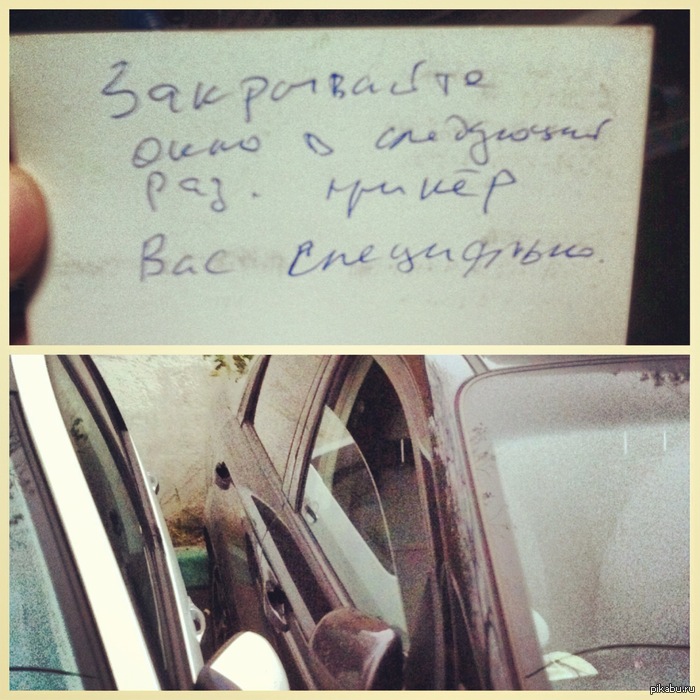 Закрывайте
окно в следующий
раз. припёр
Вас специально.
pikabu.ru